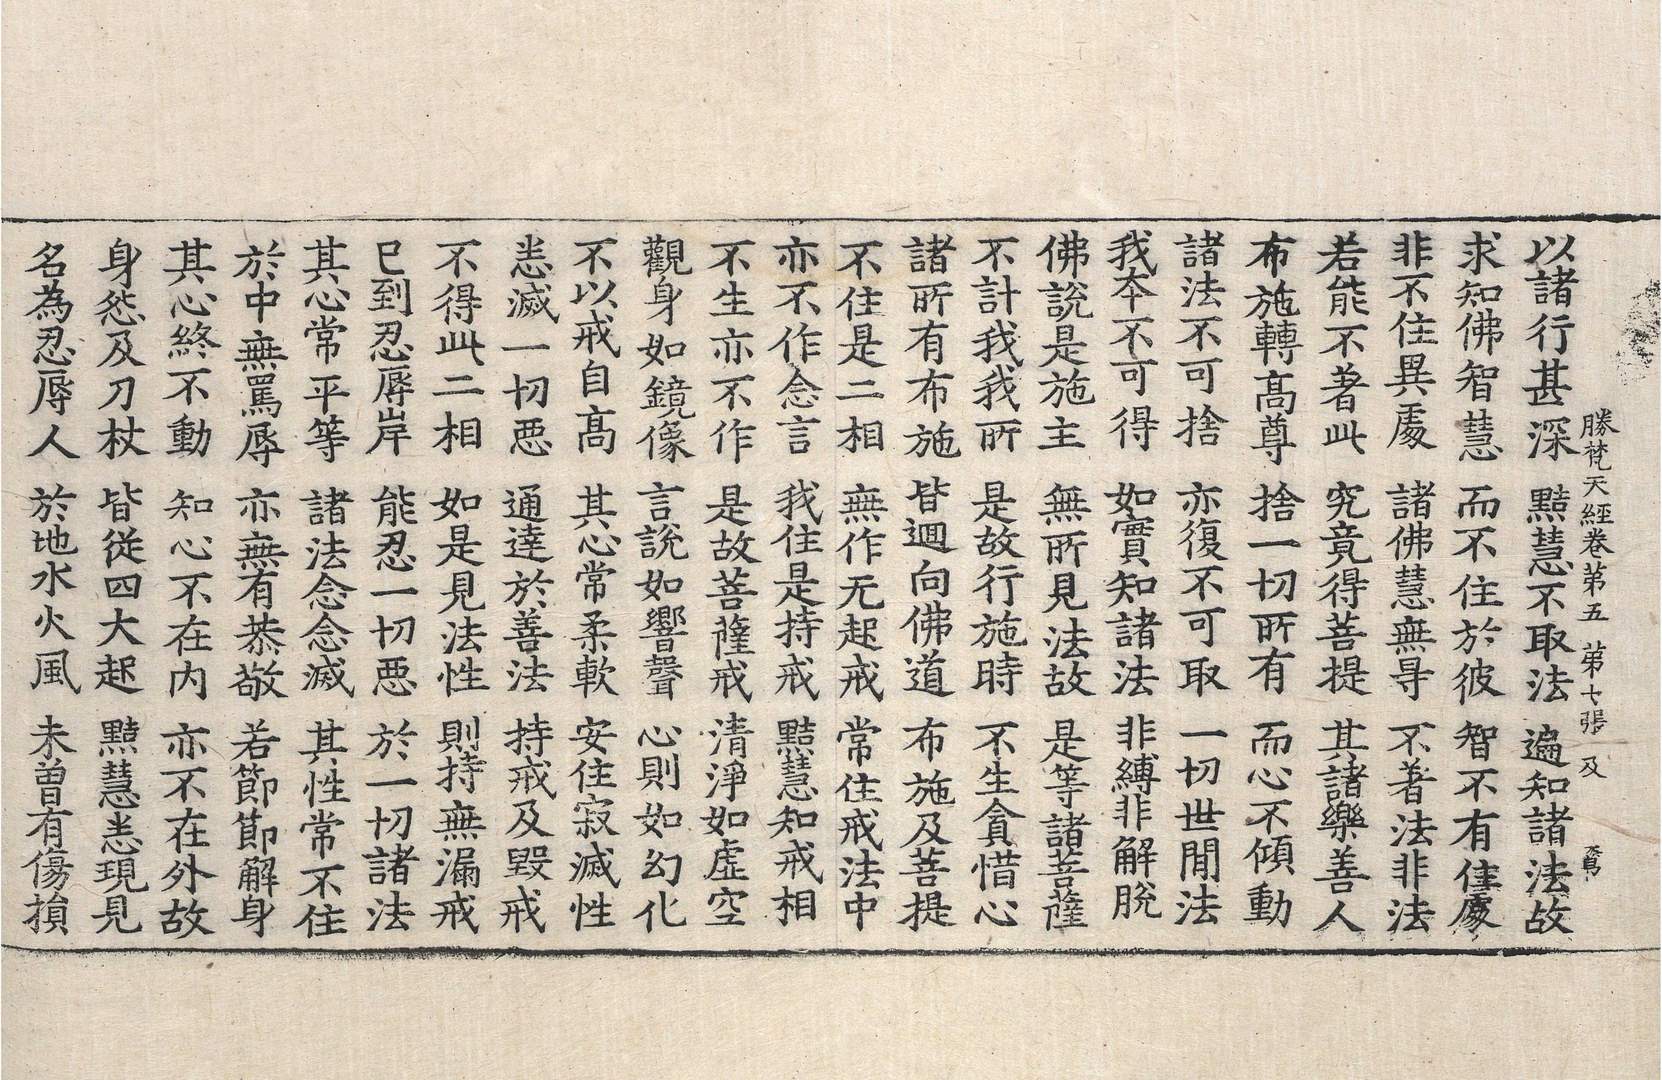 勝梵天經卷第五 第七張 及
以諸行甚深 黠慧不取法 遍知諸法故
求知佛智慧 而不住於彼 智不有住處
非不住異處 諸佛慧無㝵 不著法非法
若能不著此 究竟得菩提 其諸樂善人
布施轉高尊 捨一切所有 而心不傾動
諸法不可捨 亦復不可取 一切世間法
我本不可得 如實知諸法 非縛非解脫
佛說是施主 無所見法故 是等諸菩薩
不計我我所 是故行施時 不生貪惜心
諸所有布施 皆迴向佛道 布施及菩提
不住是二相 無作无起戒 常住戒法中
亦不作念言 我住是持戒 黠慧知戒相
不生亦不作 是故菩薩戒 清淨如虛空
觀身如鏡像 言說如響聲 心則如幻化
不以戒自高 其心常柔軟 安住寂滅性
悉滅一切惡 通達於善法 持戒及毀戒
不得此二相 如是見法性 則持無漏戒
已到忍辱岸 能忍一切惡 於一切諸法
其心常平等 諸法念念滅 其性常不住
於中無罵辱 亦無有恭敬 若節節解身
其心終不動 知心不在内 亦不在外故
身怨及刀杖 皆從四大起 黠慧悉現見
名為忍辱人 於地水火風 未曾有傷損